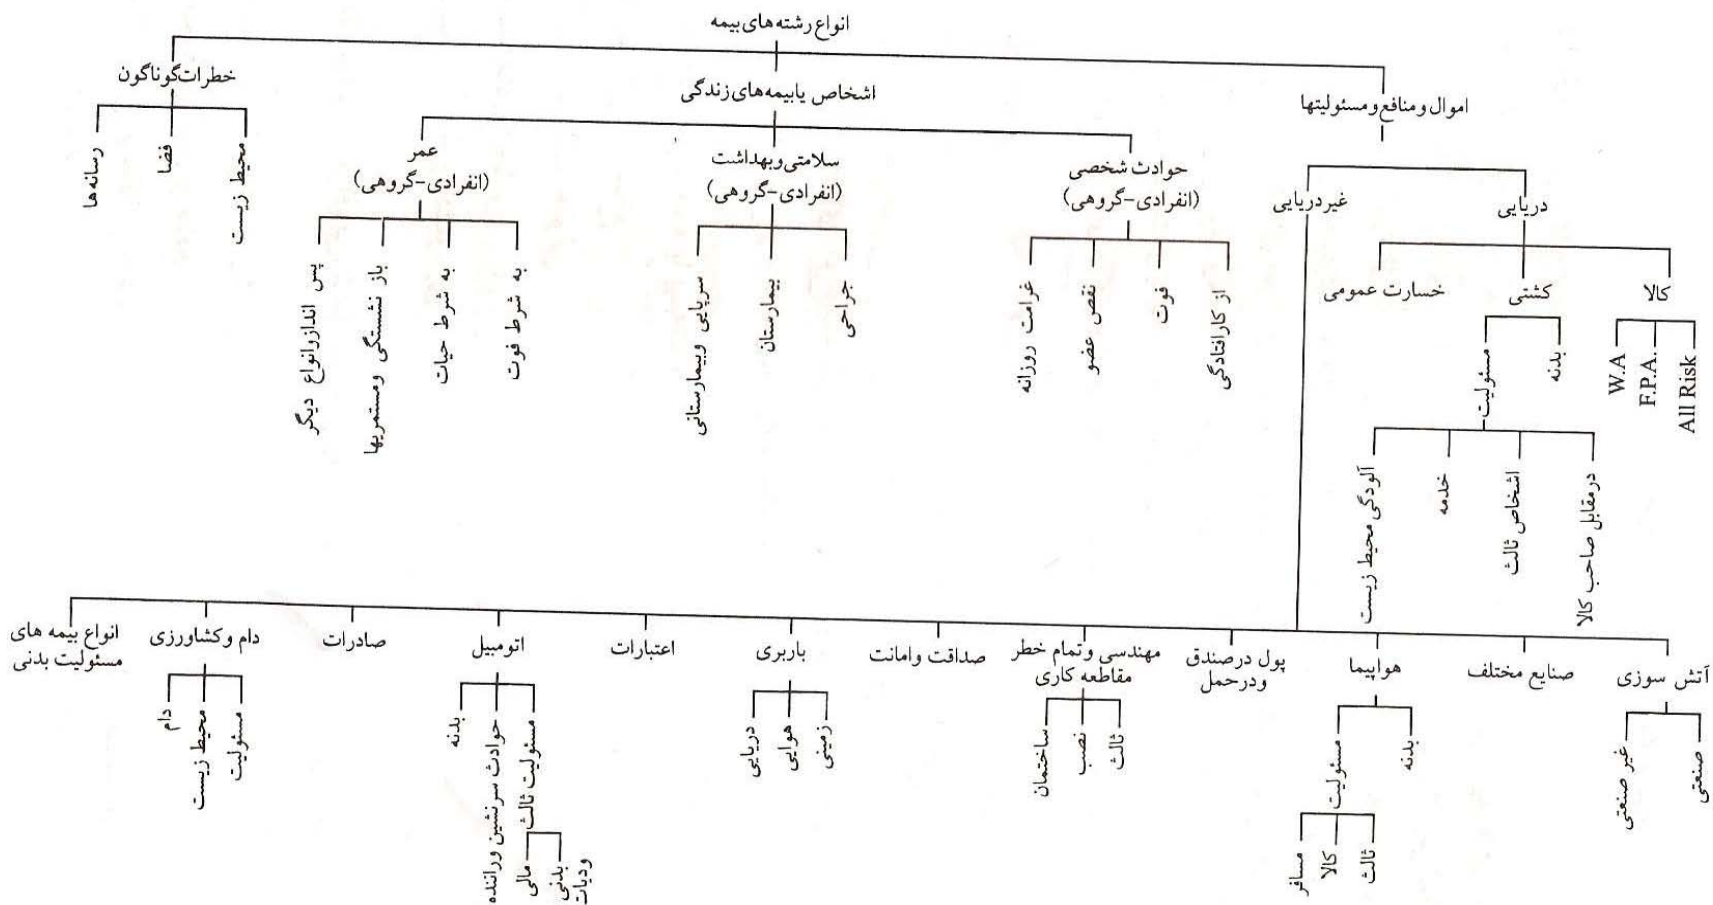 انواع رشته های بیمه
اموال و منافع و مسئولیتها
اشخاص یا بیمه های زندگی
خطرات گوناگون
دریایی
غیر دریایی
کالا
کشتی
خسارت عمومی
All Risk
F.P.A.
W.A
بدنه
مسئولیت
در مقابل صاحب کالا
اشخاص ثالث
خدمه
آلودگی محیط زیست
حوادث شخصی
(انفرادی-گروهی)
از کارافتادگی
فوت
نقص عضو
غرامت روزانه
سلامتی و بهداشت
(انفرادی-گروهی)
جراحی
بیمارستان
سرپایی و بیمارستانی
عمر
(انفرادی-گروهی)
به شرط فوت
به شرط حیات
باز نشستگی و مستمریها
پس انداز و انواع دیگر
محیط زیست
فضا
رسانه ها
آتش سوزی
صنعتی
غیر صنعتی
صنایع مختلف
هواپیما
بدنه
مسئولیت
ثالث
کالا
مسافر
پول در صندق
و در حمل
مهندسی و تمام خطر
مقاطعه کاری
ثالث
نصب
ساختمان
صداقت و امانت
باربری
زمینی
هوایی
دریایی
اعتبارات
اتومبیل
مسئولیت ثالث
بدنی
و دیات
مالی
حوادث سرنشین و راننده
بدنه
صادرات
دام و کشاورزی
مسئولیت
محیط زیست
دام
انواع بیمه های
مسئولیت بدنی